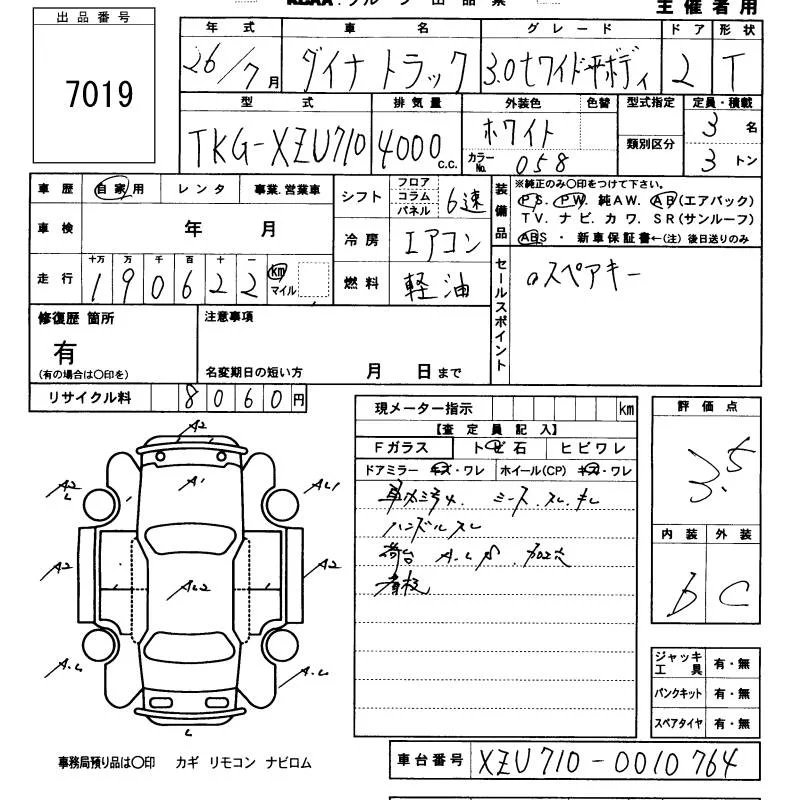 主催者用
出品番号
7019
年式 車名 グレード ドア 形状
26/7月 ダイナ トラック 3.0tワイド平ボディ 2 T
型式 排気量 外装色 色替 型式指定 定員・積載
TKG-XZU710 4000c.c. ホワイト 3名
カラーNo. 058 類別区分 3トン
車歴 自家用 レンタ 事業.営業車
車検 年 月
走行 十万 万 千 百 十 一
190622 km マイル
シフト フロア コラム パネル 6速
冷房 エアコン
燃料 軽油
装備品 ※純正のみ○印をつけて下さい。
PS. PW. 純AW. AB(エアバック)
TV. ナビ. カワ. SR(サンルーフ)
ABS ・ 新車保証書←(注) 後日送りのみ
セールスポイント
スペアキー
修復歴 箇所
有
(有の場合は○印を)
注意事項
名変期日の短い方 月 日まで
リサイクル料 8060円
現メーター指示 km
【査定員記入】
Fガラス トビ石 ヒビワレ
ドアミラー キズ・ワレ ホイール(CP) キズ・ワレ
ハンドルスレ
荷台
評価点
3.5
内装 外装
b C
A2
A2 L A1 AL1
A2 AL2 A2
A.L A.L
L
ジャッキ工具 有・無
パンクキット 有・無
スペアタイヤ 有・無
事務局預り品は○印 カギ リモコン ナビロム
車台番号 XZU710-0010764